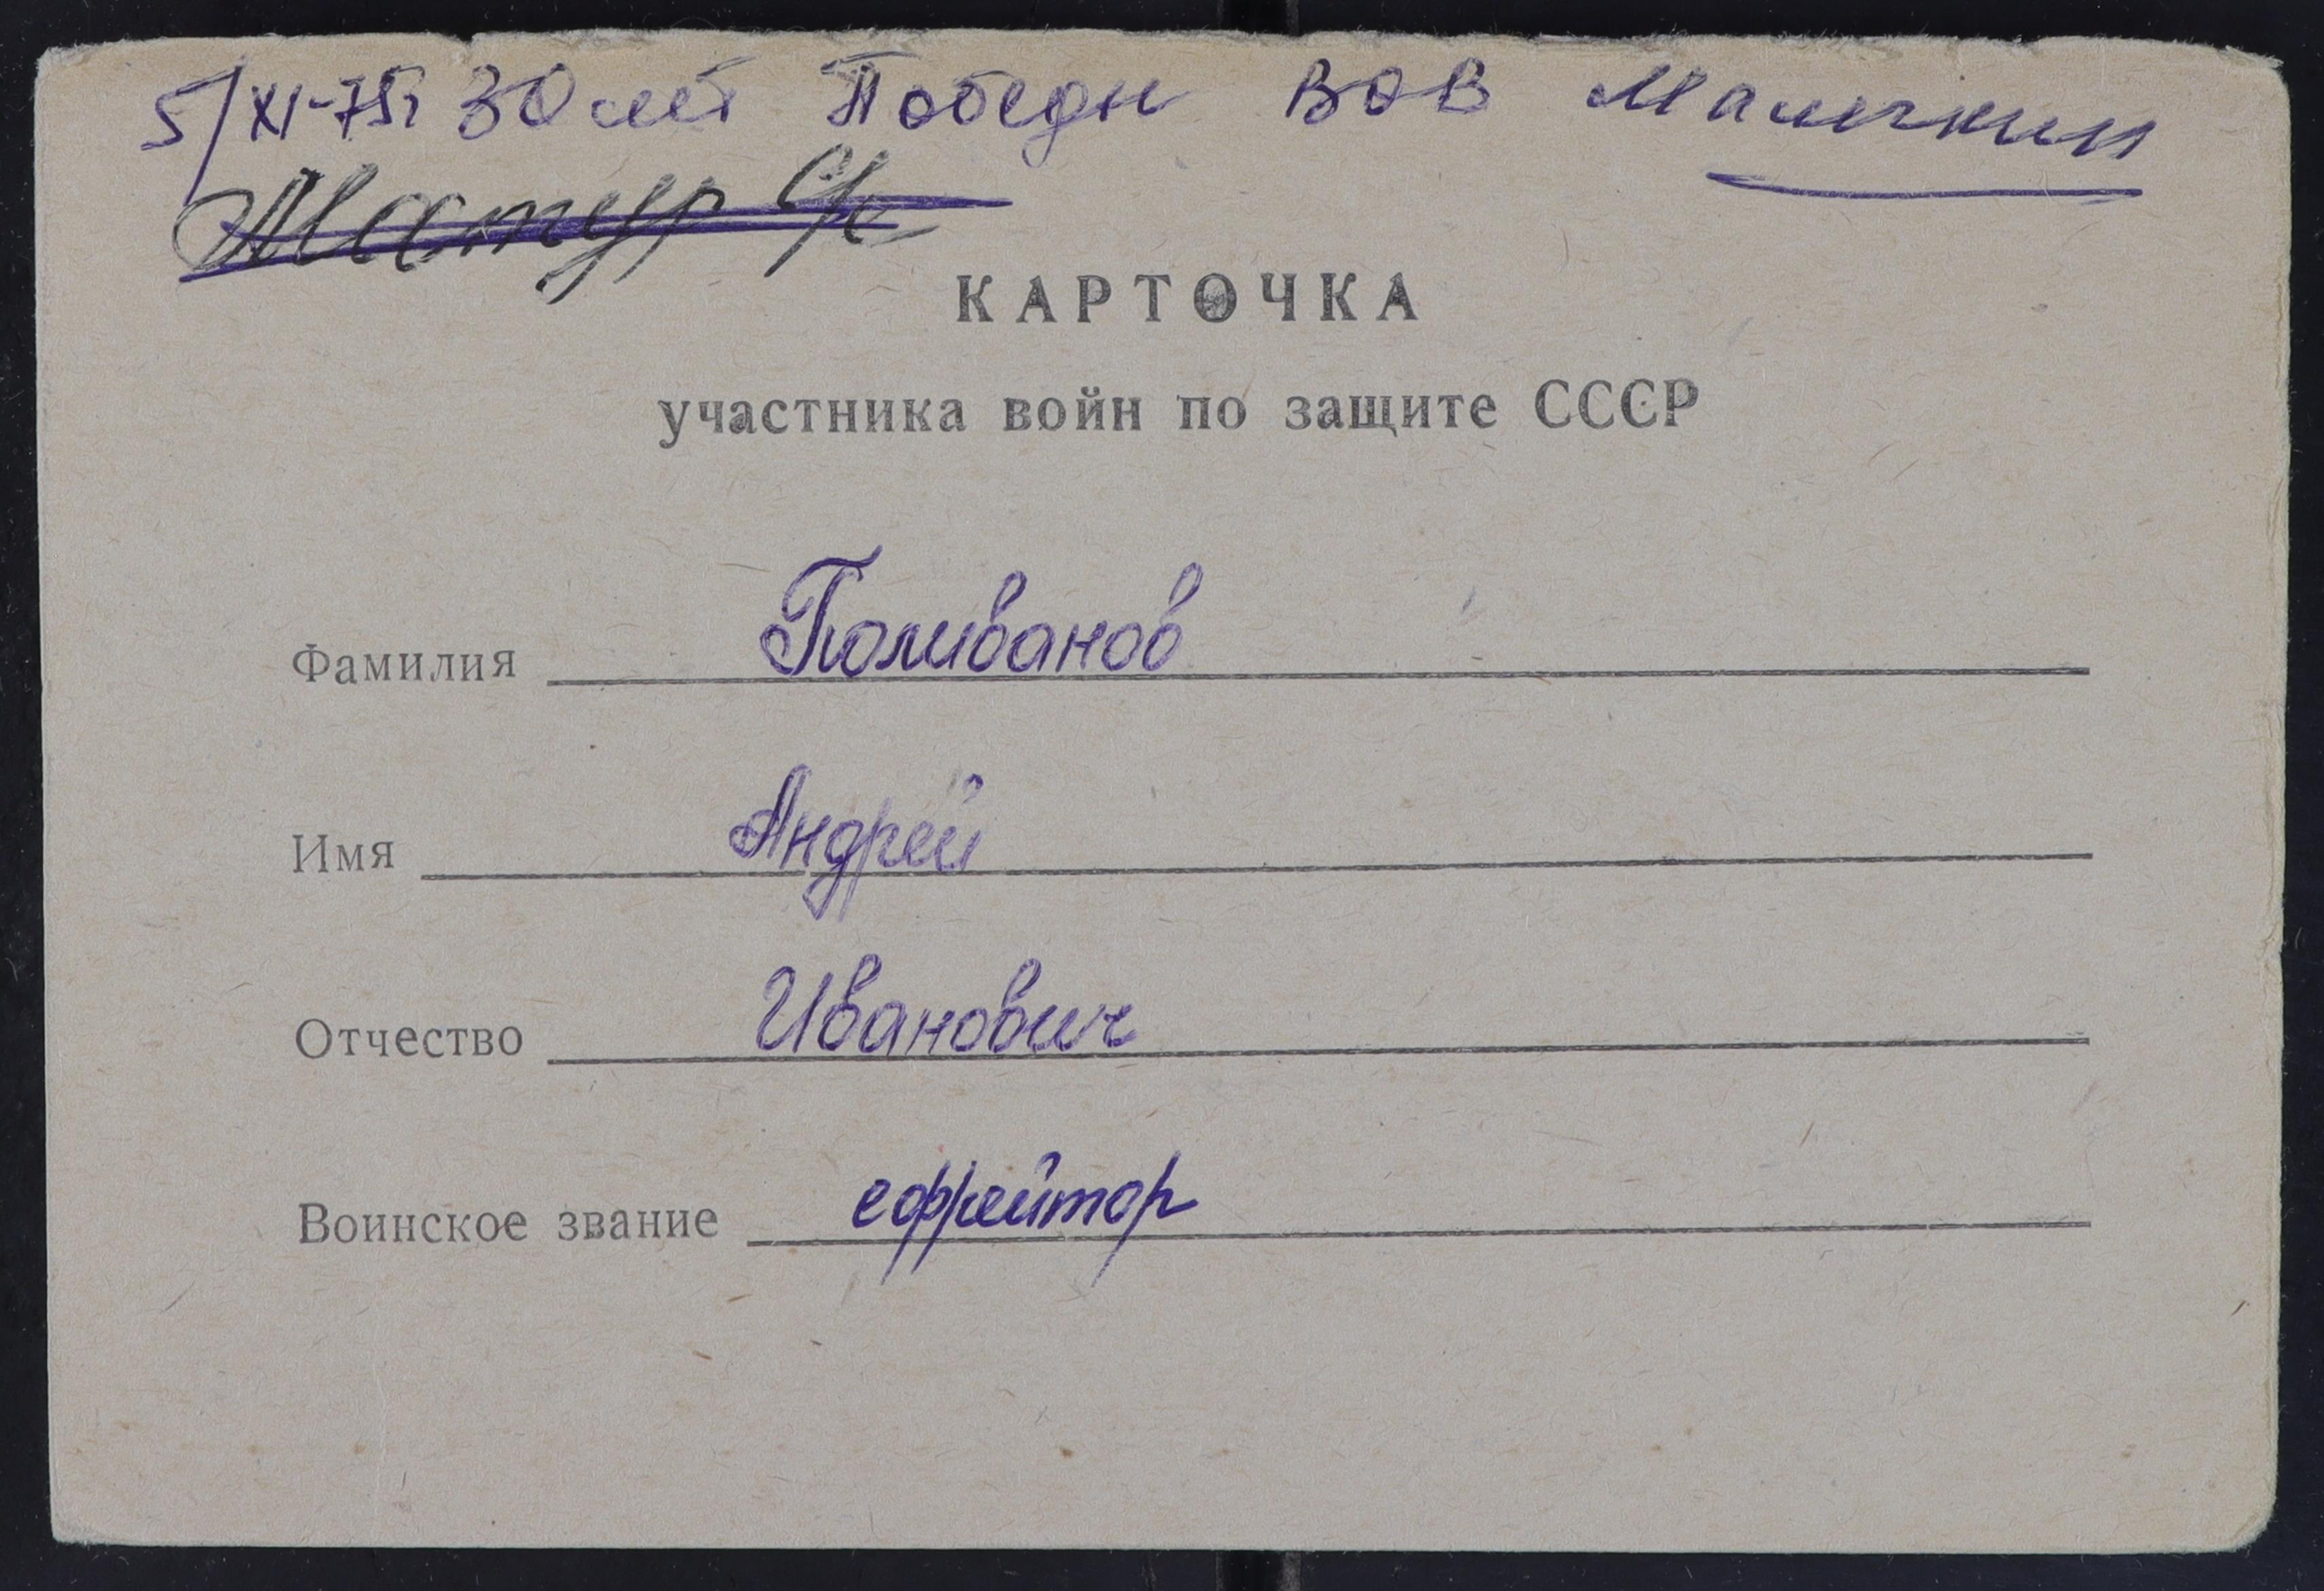 5/XI-75г 30 лет Победы ВОВ
КАРТОЧКА
участника войн по защите СССР
Фамилия Поливанов
Имя Андрей
Отчество Иванович
Воинское звание ефрейтор